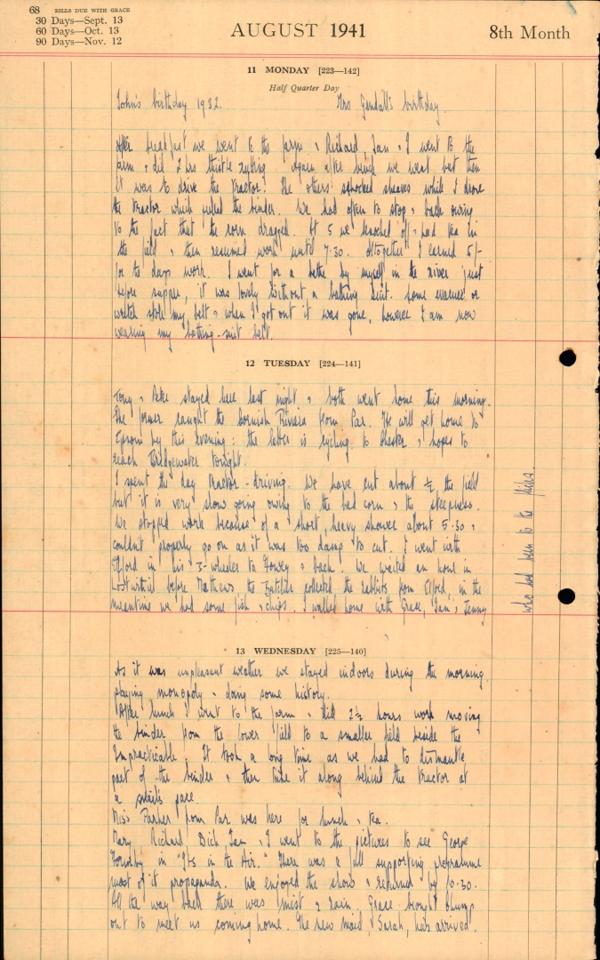 68 BILLS DUE WITH GRACE
30 Days—Sept. 13
60 Days—Oct. 13
90 Days—Nov. 12
AUGUST 1941
8th Month
11 MONDAY [223—142]
Half Quarter Day
John's birthday 1932. Mrs birthday
After breakfast we went to the farm & Richard, Ian & I went to the
farm & did 2 hrs thistle Again after lunch we went but then
it was to drive the tractor! The others shocked sheaves while I drove
the tractor which pulled the binder. We had often to stop & back owing
to the fact that the corn dragged. At 5 we knocked off & had tea in
the field & then resumed work until 7.30. Altogether I earned 5/-
for to days work. I went for a bathe by myself in the river just
before supper, it was lovely without a bathing suit. Some evacuee or
stole my belt & when I got out it was gone, however I am now
wearing my bathing-suit belt.
12 TUESDAY [224—141]
Tony & Peke stayed here last night & both went home this morning.
The former caught the Cornish Riviera from Par. He will get home to
Epsom by this evening: the latter is cycling to Chester & hopes to
reach Bridgewater tonight.
I spent the day tractor-driving. We have cut about ½ the field
but it is very slow going owing to the bad corn & the steepness.
We stopped work because of a short, heavy shower about 5.30 &
couldn't properly go on as it was too damp to cut. I went with
Elford in his 3-wheeler to Fowey & back. We waited an hour in
Lostwithiel before Mathews, the collected the rabbits from Elford, in the
meantime we had some fish & chips. I walked home with Grace, Ian & Jenny
who had been to the flicks.
13 WEDNESDAY [225—140]
As it was unpleasant weather we stayed indoors during the morning
playing monopoly & doing some history.
After lunch I went to the farm & did 2½ hours work moving
the binder from the lower field to a smaller field beside the
Impracticable. It took a long time as we had to dismantle
part of the binder & then take it along behind the tractor at
a snail's pace.
Miss Parker from Par was here for lunch & tea.
Mary, Richard, Dick, Ian & I went to the pictures to see George
Formby in "It's in the Air." There was a full supporting programme
most of it propaganda. We enjoyed the show & returned by 10.30.
All the way back there was mist & rain. Grace brought
out to meet us coming home. The new maid, Sarah, has arrived.